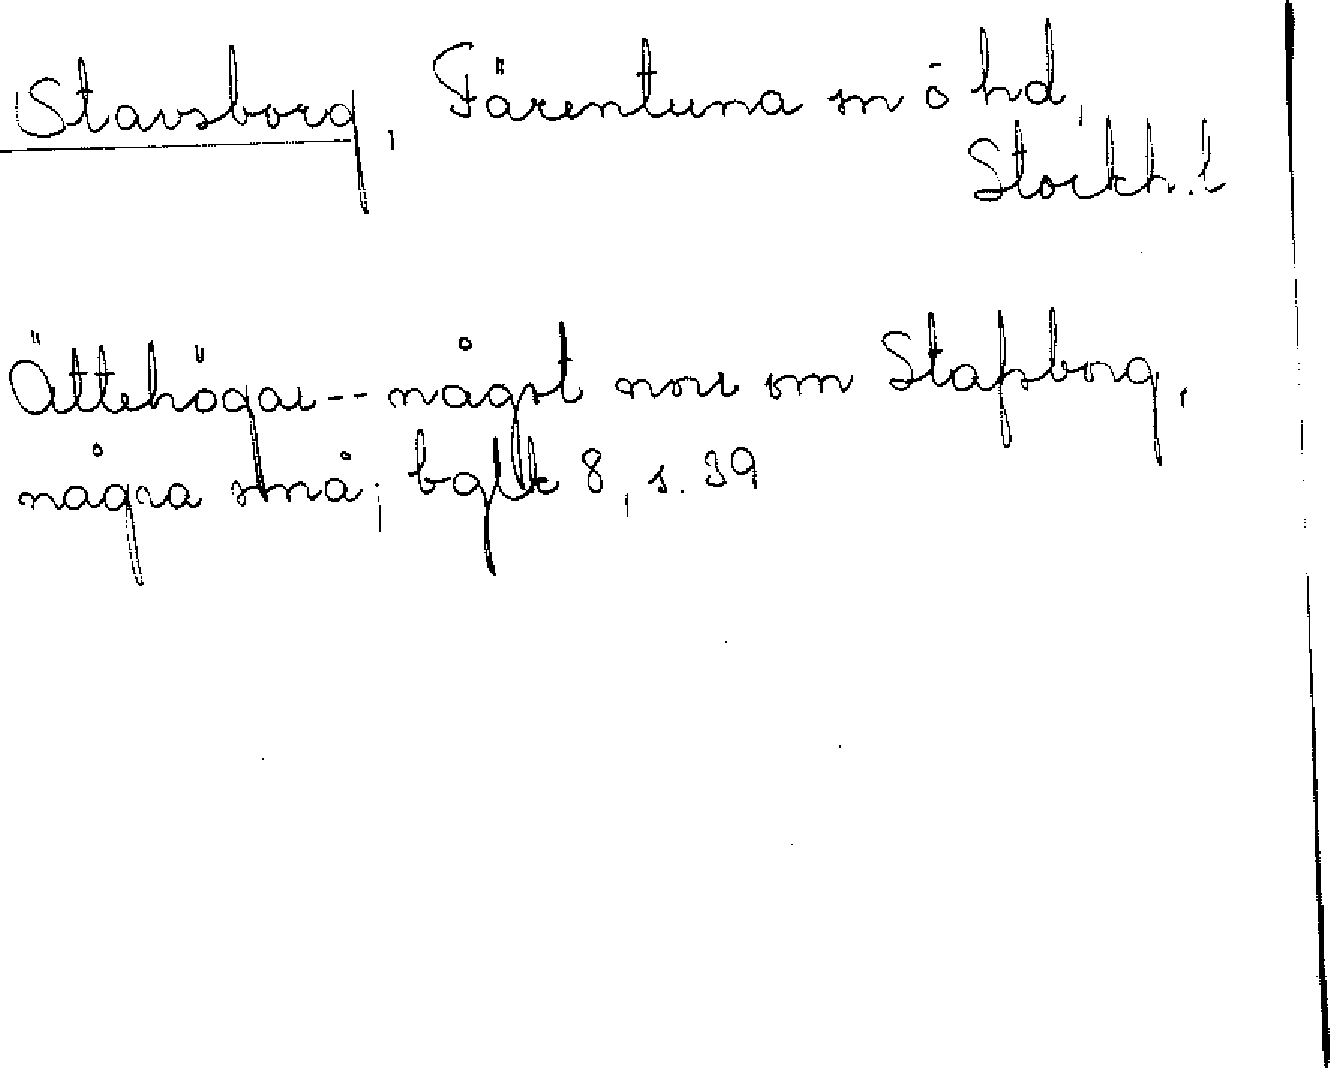 Stavsborg, Färentuna sn o hd,
Stockh. l
Ättehögar -- något norr om Stafsborg,
några små; bglk 8, s. 39